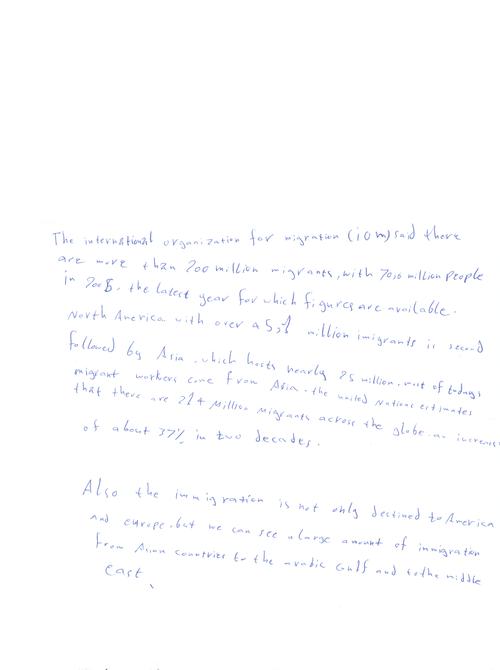 The international organization for migration (iom) said there
are more than 200 million migrants, with million people
in the latest year for which figures are available.
North America with over a million imigrants is second
followed by Asia, which hosts nearly 25 million. most of todays
migrant workers come from Asia. the united Nations estimates
that there are 214 Million migrants across the globe. an increas
of about 37% in two decades.
Also the immigration is not only destined to America
and europe. but we can see a large amount of immigration
from Asian countries to the arabic Gulf and to the middle
east